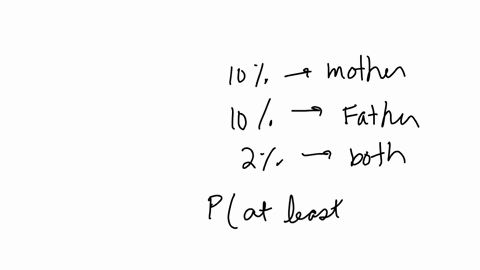 10% → mother
10% → Father
2% → both
P(at least